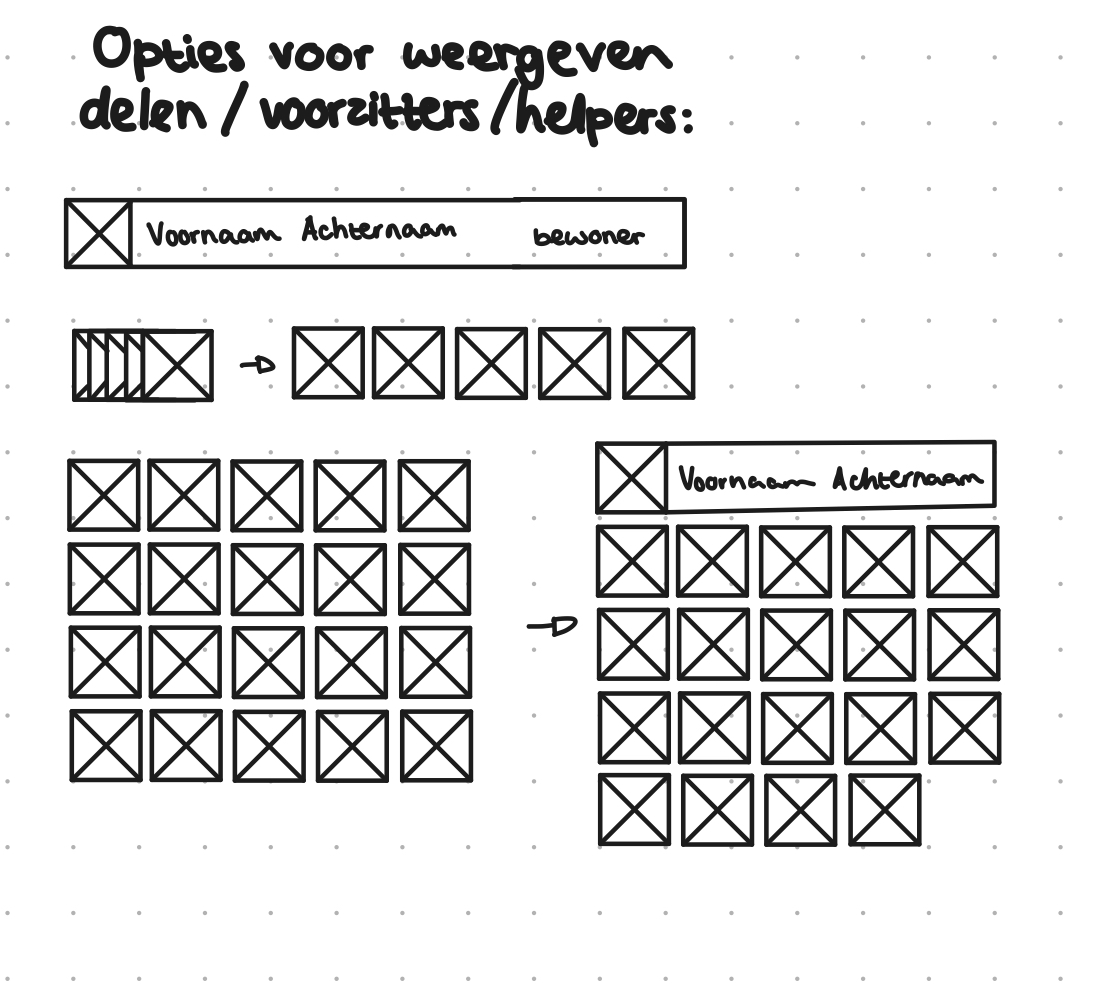 Opties voor weergeven
delen / voorzitters / helpers:
Voornaam Achternaam bewoner
Voornaam Achternaam